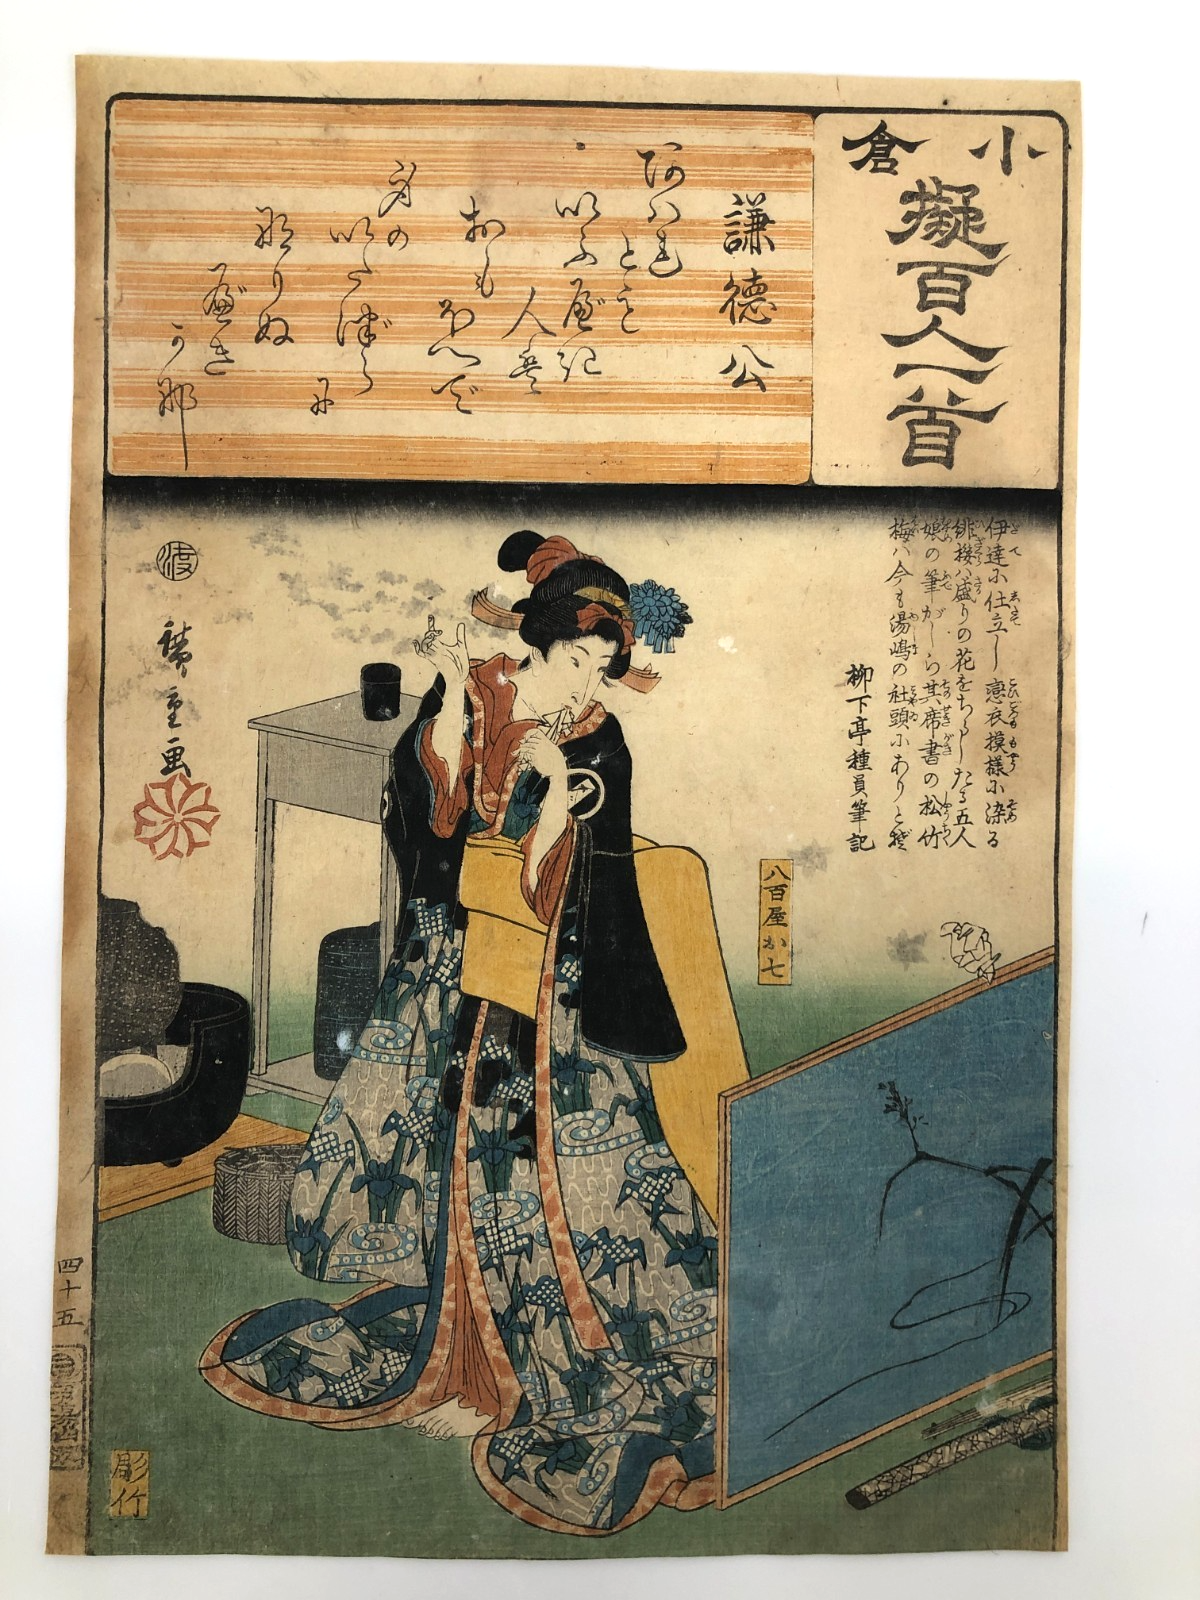 小倉
擬百人一首
謙徳公
阿八れ
とも
以ふ屋記
人盤
おも
本へで
身の
以多徒ら
に
那りぬ
べき
可那
伊達に仕立し恋衣模様に染る
緋桜ハ盛りの花をちらしたる五人
娘の筆がしら其席書の松竹
梅ハ今も湯嶋の社頭にありとぞ
柳下亭種員筆記
八百屋お七
渡
廣重画
四十五
彫竹